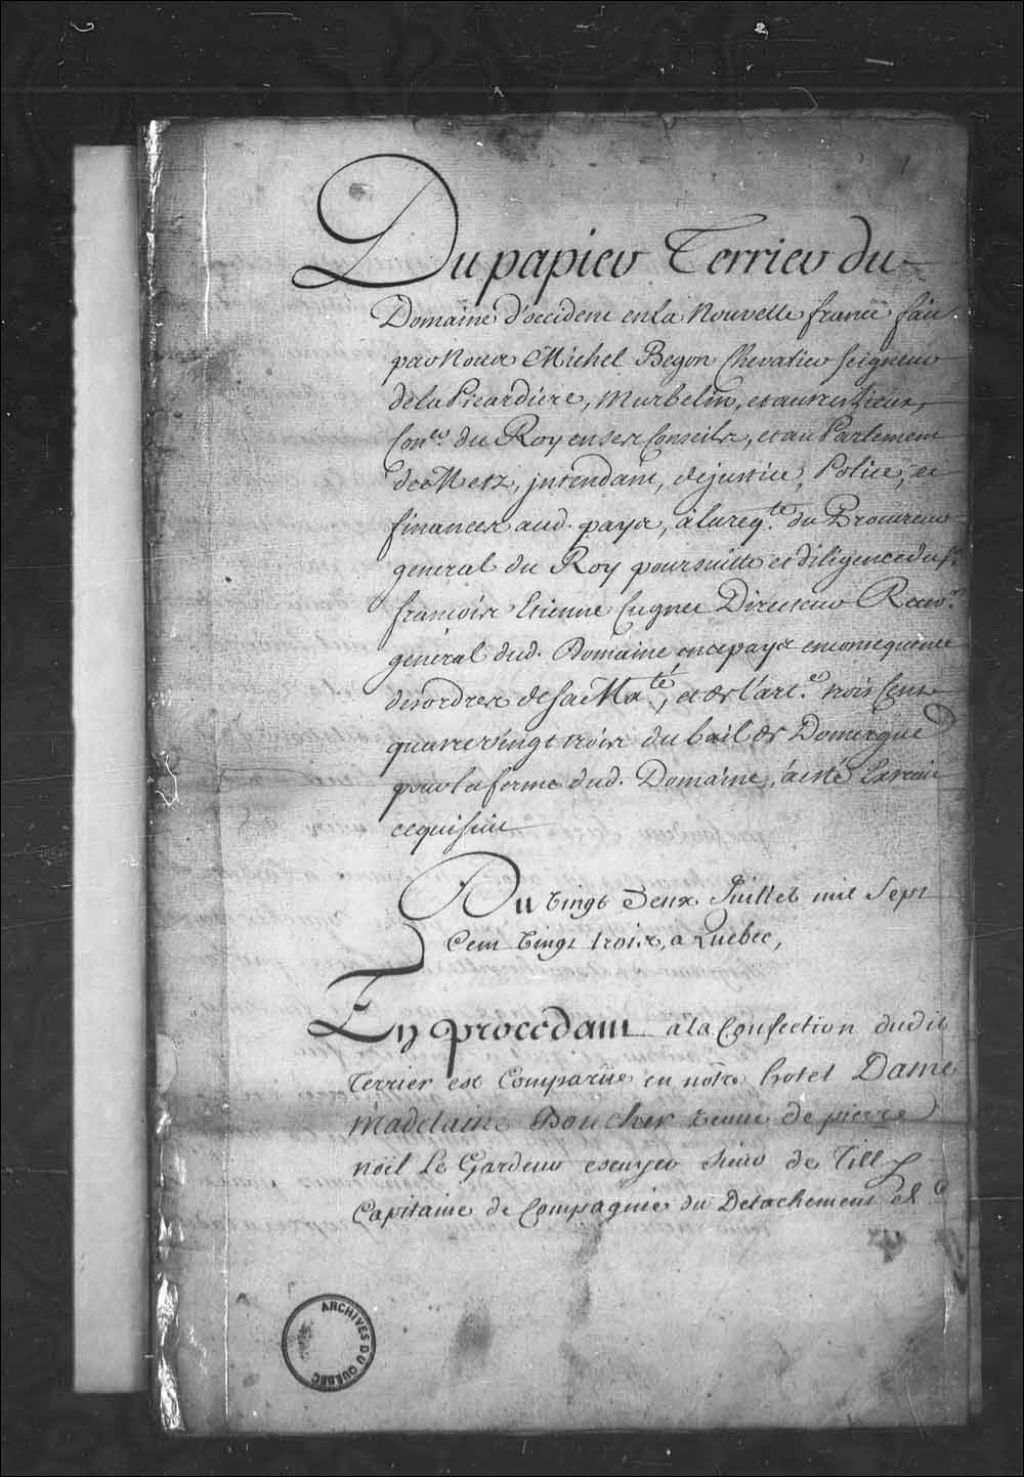 Du papier Terrier du
Domaine d'occident en la Nouvelle france fait
par Nous Michel Begon Chevalier Seigneur
de la Picardiere, Murbelin, et autres Lieux,
Con.er du Roy en ses Conseils, et au Parlement
de Metz, jntendant, de justice, Police, et
finances aud. pays, à la req.te du Procureur
general du Roy poursuitte et diligence du S.r
francois Etienne Cugnet Directeur Recev.r
général dud. Domaine en ce pays en consequence
des ordres de sa Ma.té, et de l'art.e trois Cent
quatre Vingt trois du bail de Domergue
pour la ferme dud. Domaine, a esté Extrait
ce qui suit
Du Vingt Deux Juillet mil Sept
Cent Vingt trois, a Quebec,
En procedant a la Confection dudit
Terrier est Comparüe en nôtre hotel Dame
Madelaine Boucher Veuve de pierre
noël Le Gardeur escuyer Sieur de Tilly
Capitaine de Compagnie du Detachement de la
ARCHIVES DU QUÉBEC